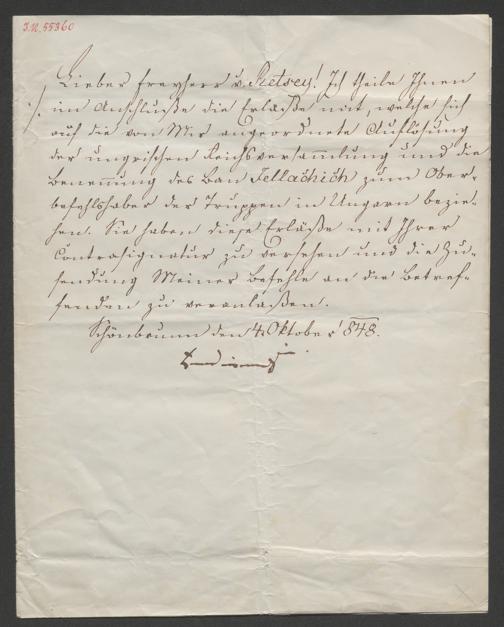 J.N. 55360
Lieber Freyherr v. Retsey! Ich theile Ihnen
im Anschluße die Erläße mit, welche sich
auf die von Mir angeordnete Auflösung
der ungrischen Reichsversammlung und die
Benennung des Ban Jellachich zum Ober-
befehlshaber der Truppen in Ungarn bezie-
hen. Sie haben diese Erläße mit Ihrer
Contrasignatur zu versehen und die Zu-
sendung Meiner Befehle an die Betref-
fenden zu veranlaßen.
Schönbrunn den 4. Oktober 848.
Ferdinand